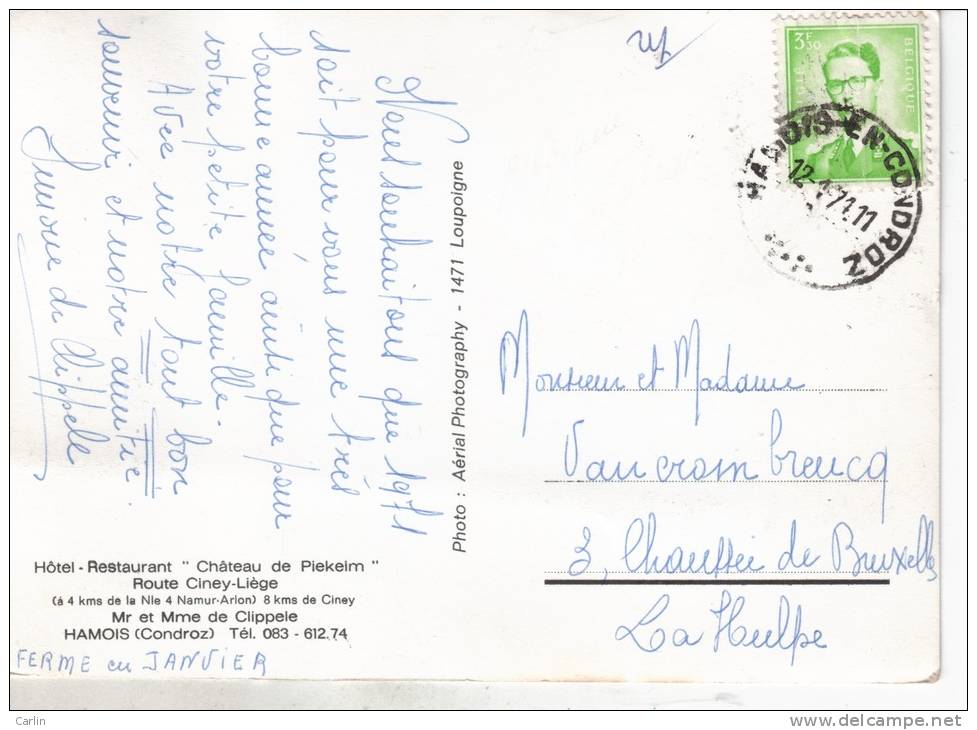 Nous souhaitons que 1971
soit pour vous une très
bonne année ainsi que pour
votre petite famille -
Avec notre tout bon
souvenir et notre amitié.
Simone de Clippele
Photo : Aérial Photography - 1471 Loupoigne
3F50
BELGIQUE
HAMOIS-EN-CONDROZ
Monsieur et Madame
Vancrombreucq
3, Chaussée de Bruxelles
La Hulpe
Hôtel - Restaurant " Château de Piekeim "
Route Ciney-Liège
(à 4 kms de la Nle 4 Namur-Arlon) 8 kms de Ciney
Mr et Mme de Clippele
HAMOIS (Condroz) Tél. 083 - 612.74
FERME en JANVIER
Carlin
delcampe.net